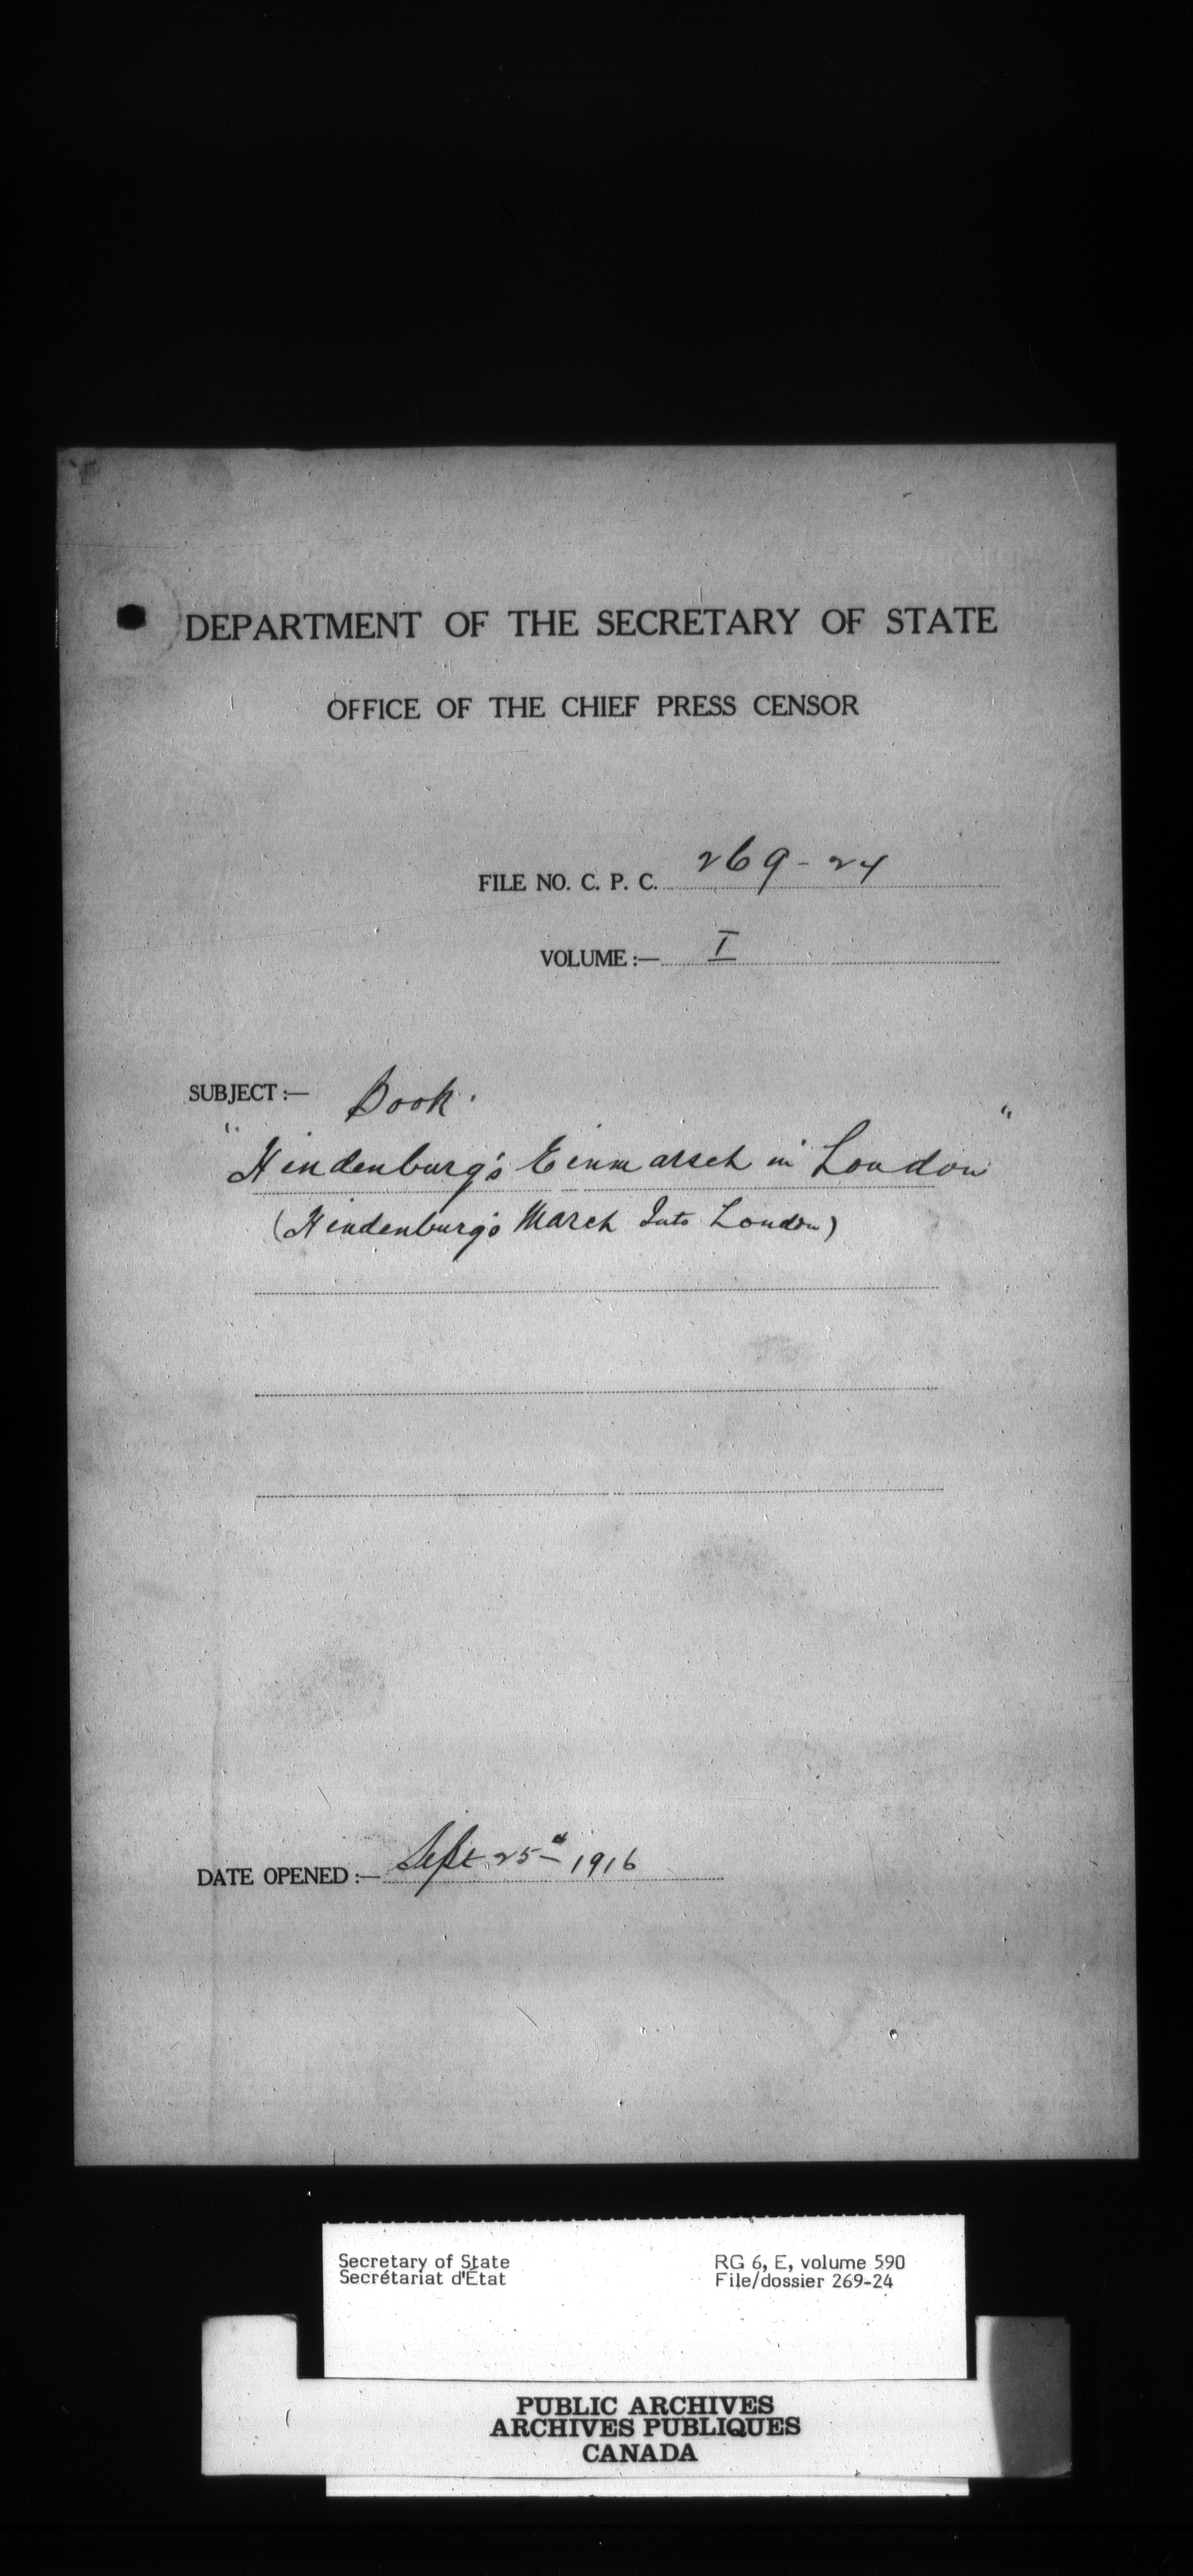 DEPARTMENT OF THE SECRETARY OF STATE
OFFICE OF THE CHIEF PRESS CENSOR
FILE NO. C. P. C. 269-24
VOLUME :— I
SUBJECT :— Book.
"Hindenburg's Einmarsch in London"
(Hindenburg's March Into London)
DATE OPENED :— Sept 25th 1916
Secretary of State
Secrétariat d'État
RG 6, E, volume 590
File/dossier 269-24
PUBLIC ARCHIVES
ARCHIVES PUBLIQUES
CANADA